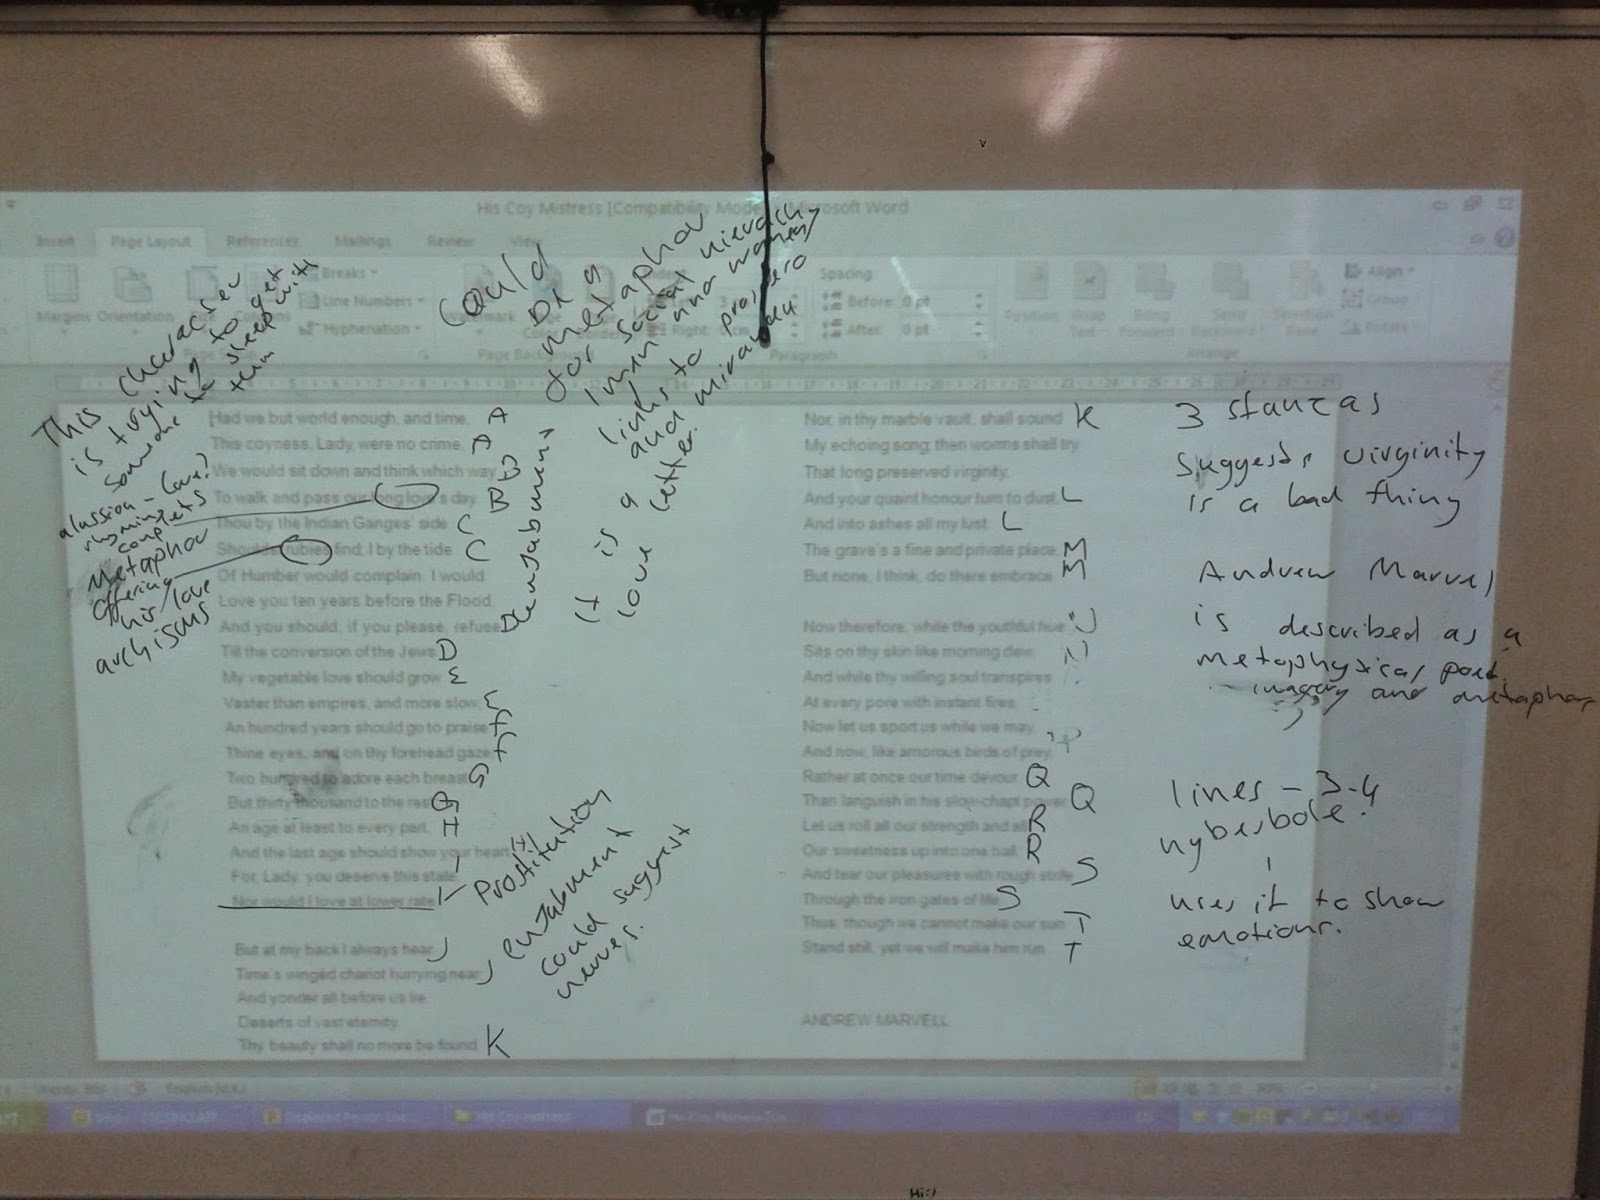 His Coy Mistress [Compatibility Mode] Microsoft Word
Insert Page Layout References Mailings Review View
Margins Orientation
Breaks
Line Numbers
Hyphenation
Page
Right:
Spacing
Before: 0 pt
After: 0 pt
Paragraph
Align
Group
Rotate
Arrange
This character
is trying to get
someone to sleep with
them
alussion - love?
rhyming
couplets
Metaphor
offering
his love
archisms
Could
be a
metaphor
for social hierachy
/man and women/
links to prospero
and miranda
It is a
love letter.
Enjabument
Had we but world enough, and time, A
This coyness, Lady, were no crime. A
We would sit down and think which way B
To walk and pass our long love's day. B
Thou by the Indian Ganges' side C
Shouldst rubies find; I by the tide C
Of Humber would complain. I would
Love you ten years before the Flood,
And you should, if you please, refuse D
Till the conversion of the Jews D
My vegetable love should grow E
Vaster than empires, and more slow; E
An hundred years should go to praise F
Thine eyes, and on thy forehead gaze F
Two hundred to adore each breast G
But thirty thousand to the rest G
An age at least to every part, H
And the last age should show your heart. H
For, Lady, you deserve this state, I
Nor would I love at lower rate. I
Prostitution
enjabment
could suggest
nerves.
But at my back I always hear J
Time's winged chariot hurrying near, J
And yonder all before us lie
Deserts of vast eternity.
Thy beauty shall no more be found, K
Nor, in thy marble vault, shall sound K
My echoing song; then worms shall try
That long preserved virginity,
And your quaint honour turn to dust, L
And into ashes all my lust. L
The grave's a fine and private place, M
But none, I think, do there embrace. M
Now therefore, while the youthful hue N
Sits on thy skin like morning dew, N
And while thy willing soul transpires
At every pore with instant fires,
Now let us sport us while we may, P
And now, like amorous birds of prey,
Rather at once our time devour Q
Than languish in his slow-chapt power. Q
Let us roll all our strength and all R
Our sweetness up into one ball, R
And tear our pleasures with rough strife S
Through the iron gates of life. S
Thus, though we cannot make our sun T
Stand still, yet we will make him run. T
ANDREW MARVELL
3 stanzas
Suggests virginity
is a bad thing
Andrew Marvel
is described as a
metaphysical poet.
- imagery and metaphor
lines - 3-4
hyberbole.
uses it to show
emotions.
His Coy Mistress
Hi:)